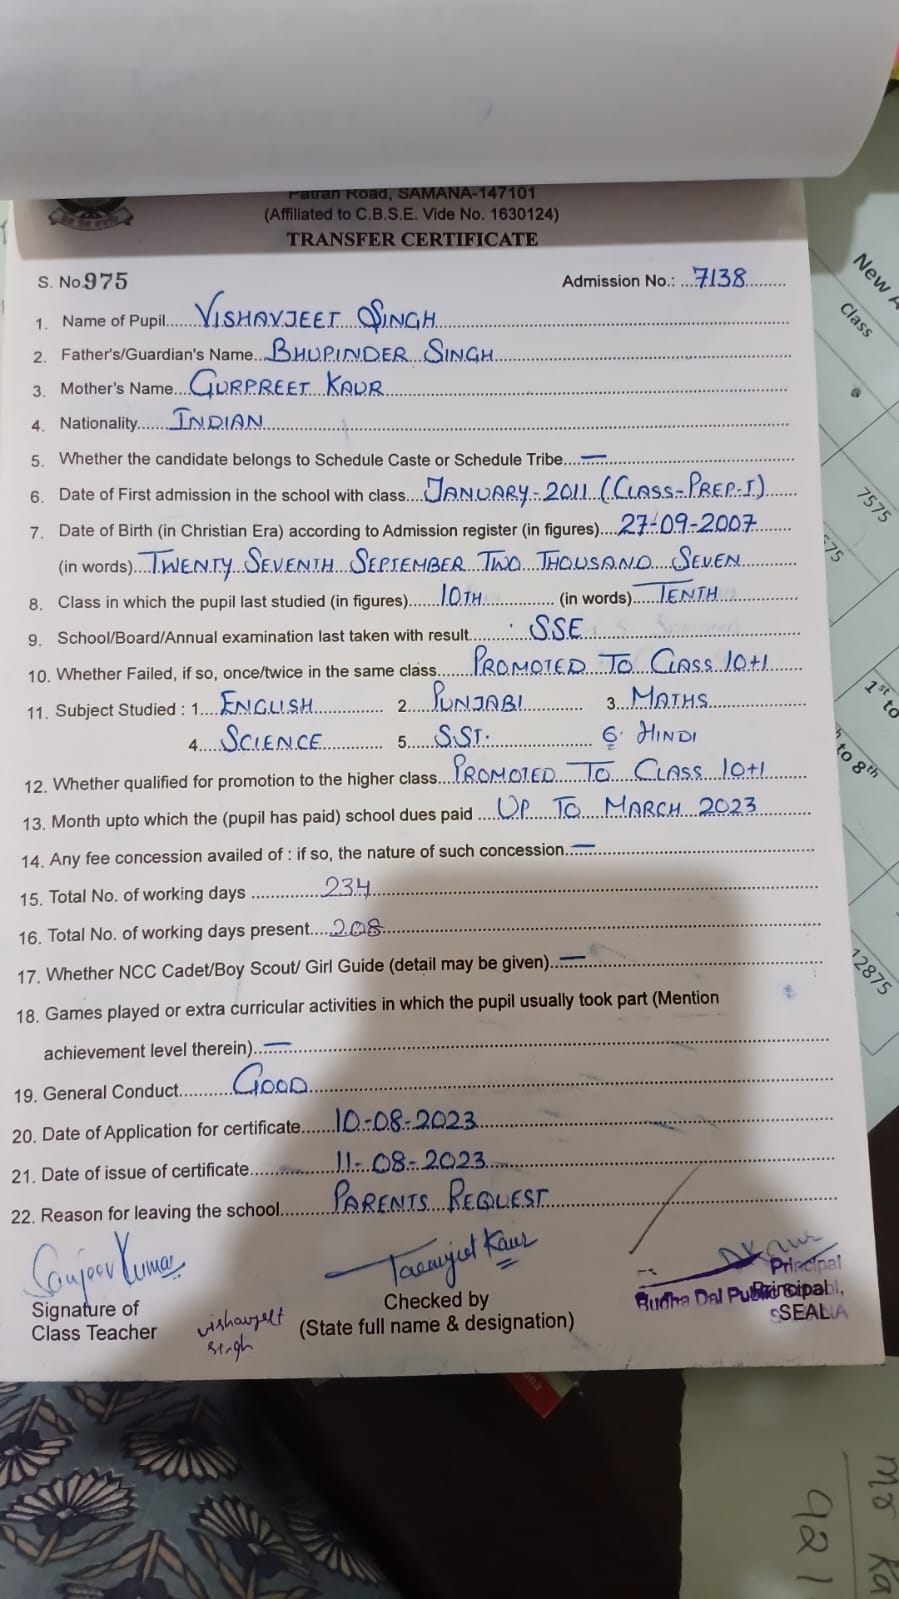 Patran Road, SAMANA-147101
(Affiliated to C.B.S.E. Vide No. 1630124)
TRANSFER CERTIFICATE
S. No.975 Admission No.: 7138
1. Name of Pupil VISHAVJEET SINGH
2. Father's/Guardian's Name BHUPINDER SINGH
3. Mother's Name GURPREET KAUR
4. Nationality INDIAN
5. Whether the candidate belongs to Schedule Caste or Schedule Tribe —
6. Date of First admission in the school with class JANUARY-2011 (CLASS-PREP-I)
7. Date of Birth (in Christian Era) according to Admission register (in figures) 27-09-2007
(in words) TWENTY SEVENTH SEPTEMBER TWO THOUSAND SEVEN
8. Class in which the pupil last studied (in figures) 10TH (in words) TENTH
9. School/Board/Annual examination last taken with result SSE
10. Whether Failed, if so, once/twice in the same class PROMOTED TO CLASS 10+1
11. Subject Studied : 1 ENGLISH 2 PUNJABI 3 MATHS
4 SCIENCE 5 S.ST. 6. HINDI
12. Whether qualified for promotion to the higher class PROMOTED TO CLASS 10+1
13. Month upto which the (pupil has paid) school dues paid UP TO MARCH 2023
14. Any fee concession availed of : if so, the nature of such concession —
15. Total No. of working days 234
16. Total No. of working days present 208
17. Whether NCC Cadet/Boy Scout/ Girl Guide (detail may be given) —
18. Games played or extra curricular activities in which the pupil usually took part (Mention
achievement level therein) —
19. General Conduct GOOD
20. Date of Application for certificate 10-08-2023
21. Date of issue of certificate 11-08-2023
22. Reason for leaving the school PARENTS REQUEST
Sanjeev Kumar
Signature of
Class Teacher
vishavjeet
singh
Kaur
Checked by
(State full name & designation)
Principal
Budha Dal Public
Principal
SEAL
New
Class
7575
575
1st to
to 8th
12875
921